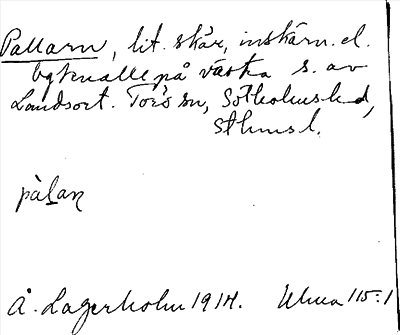 Pallarn, lit. skär, inskärn. el.
på västra s. av
Landsort. Torö sn, Sotholms hd,
Sthms l.
pàlaɳ
Å. Lagerholm 1914. Uhua 115:1